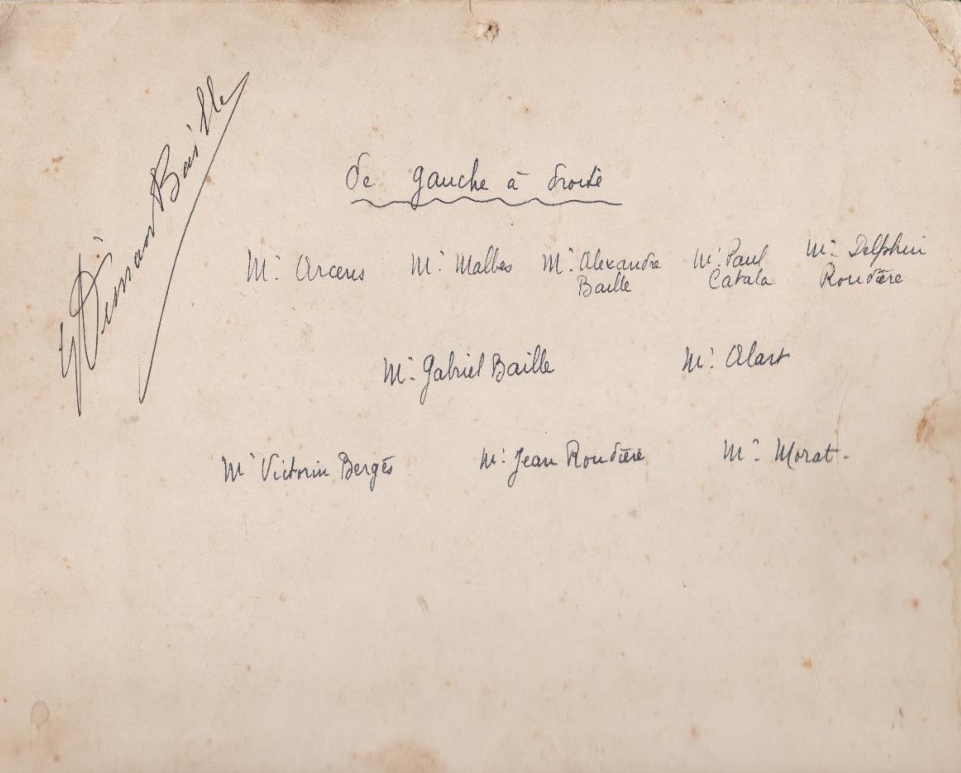 De gauche à droite
Mr. Arcens Mr. Malbes Mr. Alexandre Baille Mr. Paul Catala Mr. Delphin Roudière
Mr. Gabriel Baille Mr. Alart
Mr. Victorin Bergès Mr. Jean Roudière Mr. Morat.
Baille